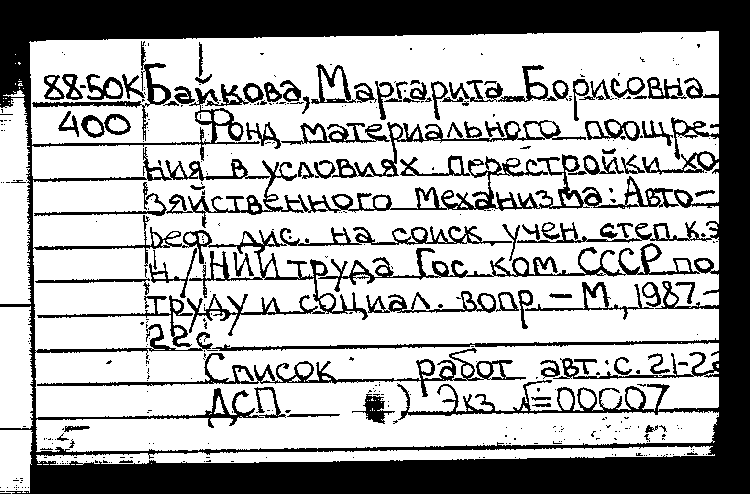 88-50К Байкова, Маргарита Борисовна
400 Фонд материального поощре-
ния в условиях перестройки хо
зяйственного механизма: Авто-
реф дис. на соиск. учен. степ. к.э
н. / НИИ труда Гос. ком. СССР по
труду и социал. вопр. – М., 1987.–
22 с.
Список работ авт.: с. 21-22
ДСП. ) Экз №=00007
5